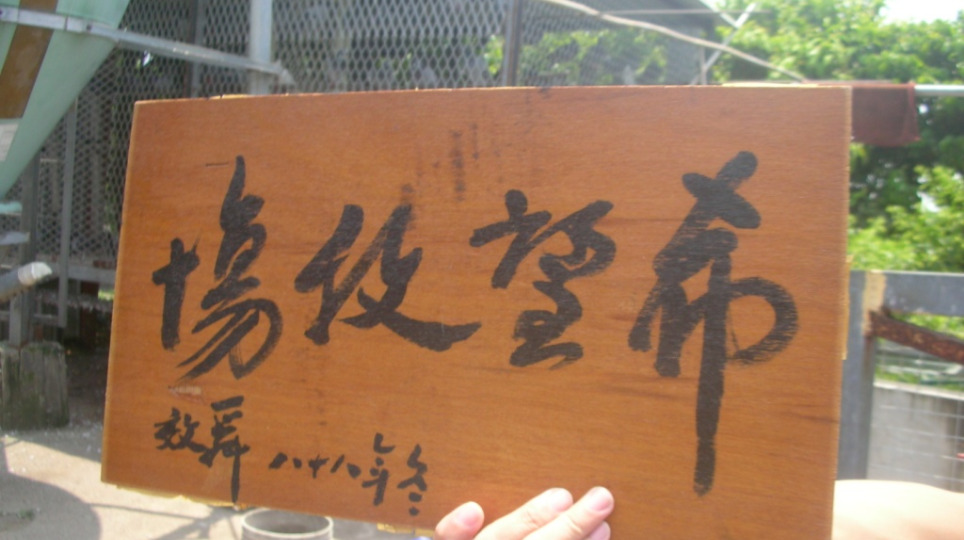 希望牧場
效舜 八十八年冬